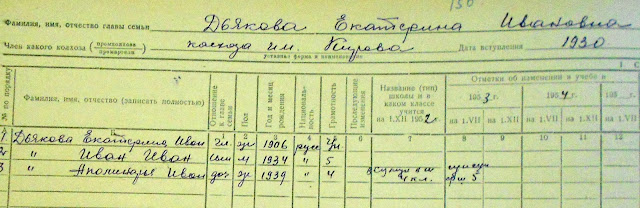 130
Фамилия, имя, отчество главы семьи Дьякова Екатерина Ивановна
Член какого колхоза (промколхоза колхоза им. Кирова Дата вступления 1930
уставная форма и наименование
1 С
№ по порядку Фамилия, имя, отчество (записать полностью) Отношение к главе семьи Пол Год и месяц рождения Националь- ность Грамотность Последующие изменения Название (тип) школы и в каком классе учится на 1.XII 1952 г. Отметки об изменении в учебе и
1953 г. 1954 г. 195
на 1.VII на 1.XII на 1.VII на 1.XII на 1.VII
1 2 3 4 5 6 7 8 9 10 11 12
1 Дьякова Екатерина Иван гл. ж 1906 русс
2 " Иван Иван сын м 1934 " 5
3 " Иван доч ж 1939 " 4 4 кл. 5